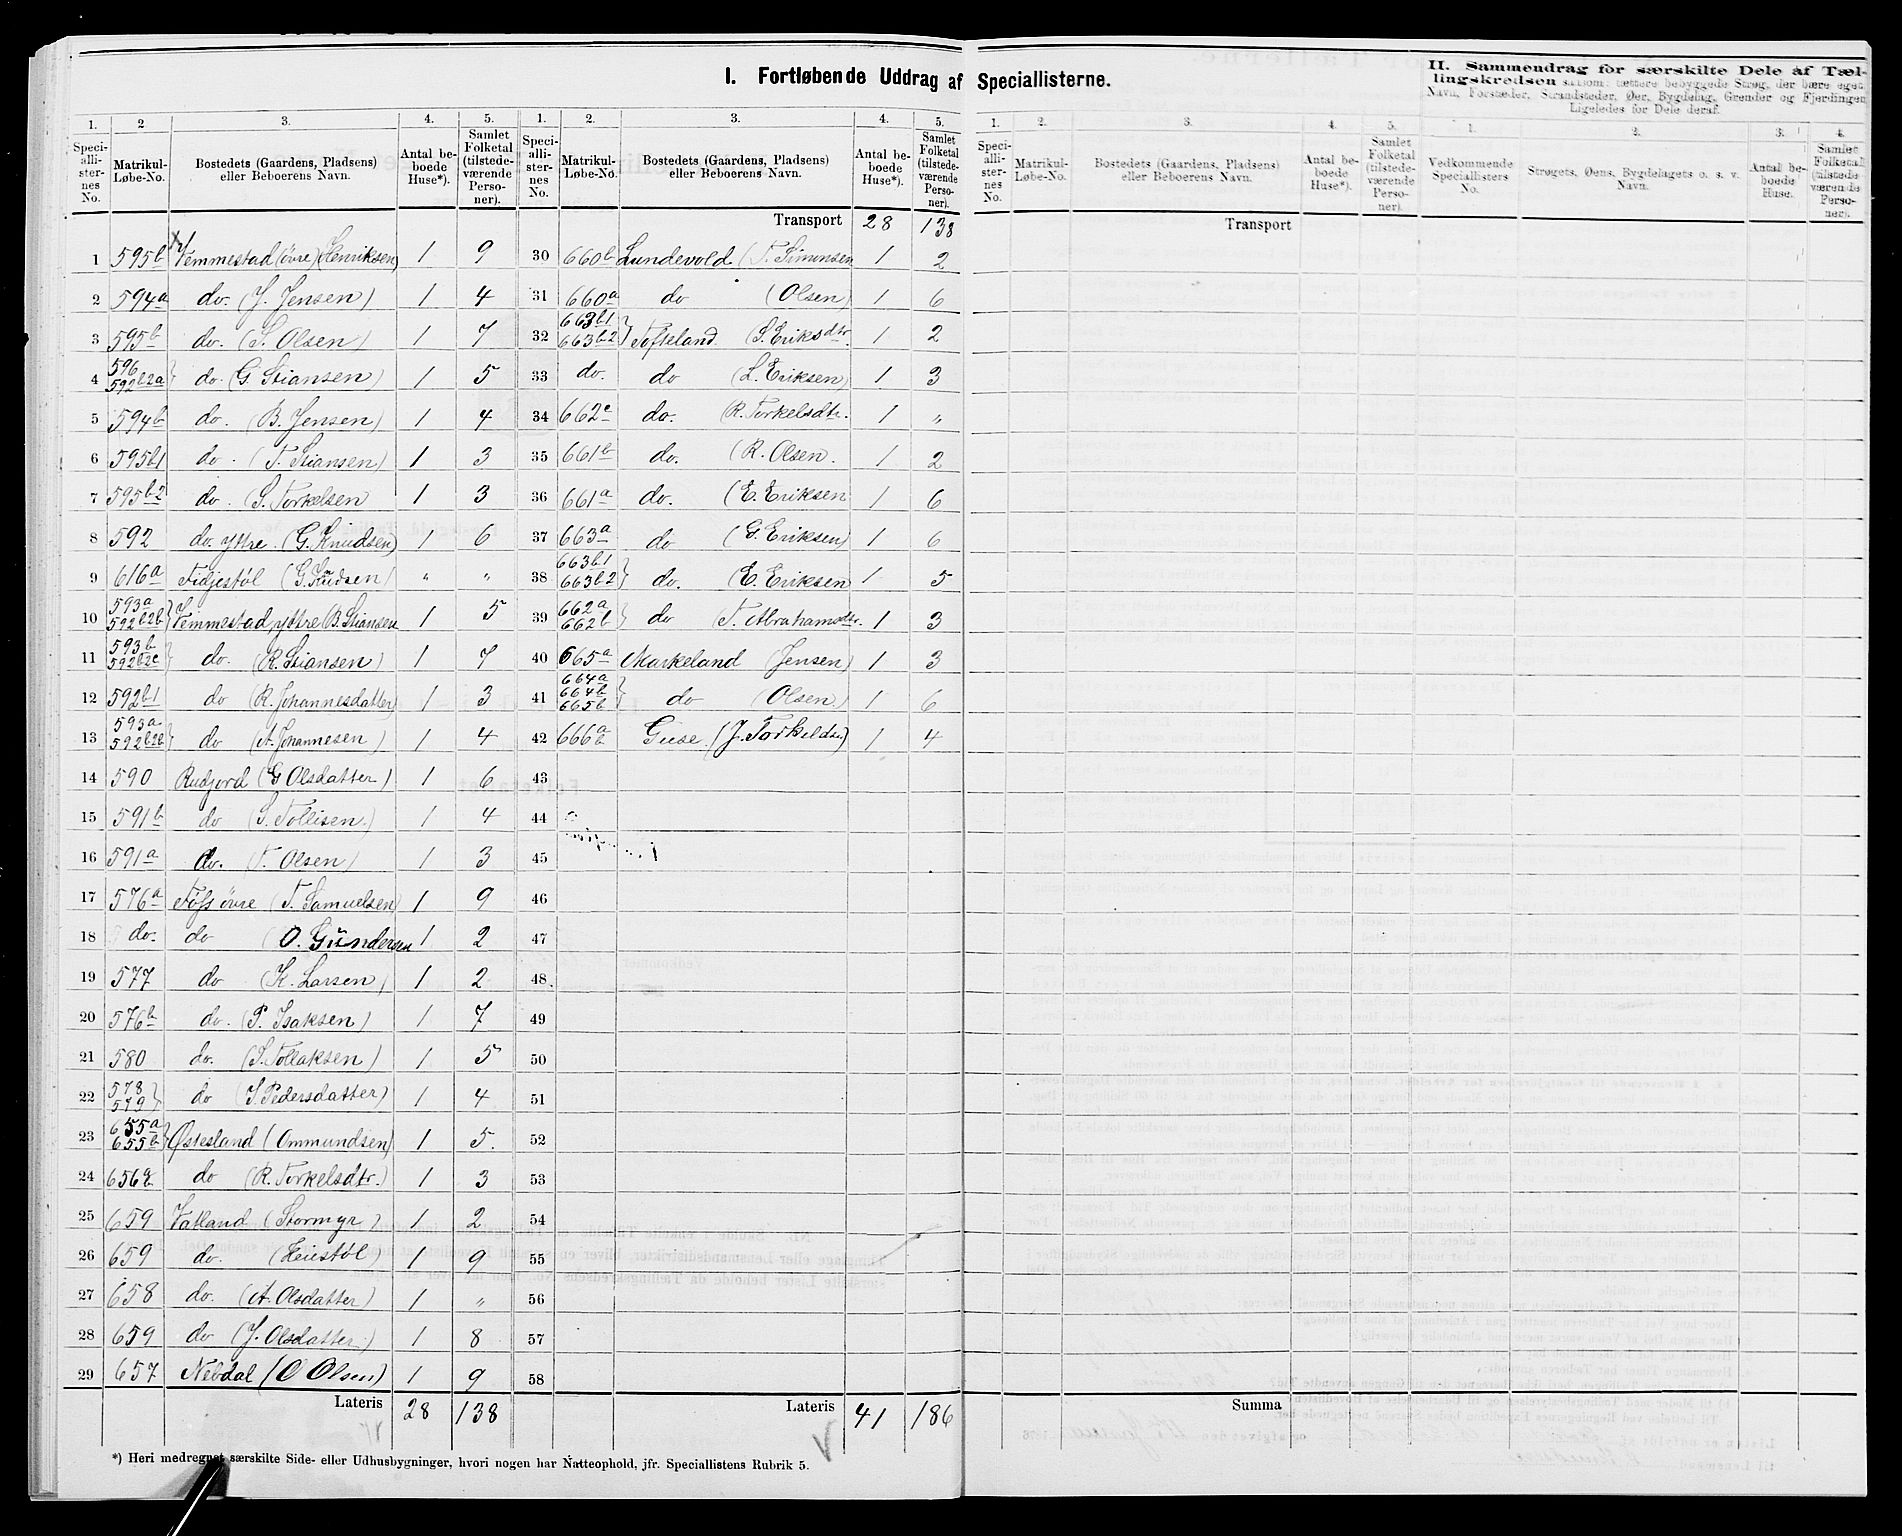 I. Fortløbende Uddrag af Speciallisterne.
II. Sammendrag for særskilte Dele af Tællingskredsen saasom: tættere bebyggede Strøg, der bære eget Navn, Forstæder, Strandsteder, Øer, Bygdelag, Grender og Fjerdinger. Ligeledes for Dele deraf.
1. 2 3. 4. 5. 1. 2. 3. 4. 5. 1. 2. 3. 4. 5. 1. 2. 3. 4.
Speciallisternes No. Matrikul-Løbe-No. Bostedets (Gaardens, Pladsens) eller Beboerens Navn. Antal beboede Huse*). Samlet Folketal (tilstedeværende Personer).
Speciallisternes No. Matrikul-Løbe-No. Bostedets (Gaardens, Pladsens) eller Beboerens Navn. Antal beboede Huse*). Samlet Folketal (tilstedeværende Personer).
Speciallisternes No. Matrikul-Løbe-No. Bostedets (Gaardens, Pladsens) eller Beboerens Navn. Antal beboede Huse*). Samlet Folketal (tilstedeværende Personer).
Vedkommende Speciallisters No. Strøgets, Øens, Bygdelagets o. s. v. Navn. Antal beboede Huse. Samlet Folketal (tilstedeværende Personer).
1 595b Vemmestad (övre) (Henriksen) 1 9
2 594a do. (J. Jensen) 1 4
3 595b do. (S. Olsen) 1 7
4 596 592b2a do. (G. Stiansen) 1 5
5 594b do. (B. Jensen) 1 4
6 595b1 do. (T. Stiansen) 1 3
7 595b2 do. (S. Torkelsen 1 3
8 592 do. yttre. (G. Knudsen) 1 6
9 616a Fidjestöl (G. Knudsen) " "
10 593a 592b2b Vemmestad, yttre B. Stiansen 1 5
11 593b 592b2c do. (R. Stiansen) 1 7
12 592b1 do (R. Johannesdatter) 1 3
13 593a 592b2b do (A. Johannesen) 1 4
14 590 Rudjord (G Olsdatter) 1 6
15 591b do (S. Tollisen.) 1 4
16 591a do. (T. Olsen) 1 3
17 576a Föss övre (T. Samuelsen) 1 9
18 do. do (O. Gundersen 1 2
19 577 do (K. Larsen) 1 2
20 576b do. (P. Isaksen) 1 7
21 580 do. (S. Tollaksen) 1 5
22 578 579 do (J. Pedersdatter) 1 4
23 655a 655b Østesland (Ommundsen) 1 5.
24 656a do (R. Torkelsdtr.) 1 3
25 659 Vatland (Stormyr) 1 2
26 659 do. (Heiestöl 1 9
27 658 do. (A. Olsdatter) 1 "
28 659 do (J. Olsdatter) 1 8
29 657 Nebdal (O Olsen) 1 9
Lateris 28 138
Transport 28 138
30 660b Lundevold (T. Simonsen 1 2
31 660a do (Olsen) 1 6
32 663b1 663b2 Tofteland (S. Eriksdtr. 1 2
33 do. do (L. Eriksen) 1 3
34 662c do. (R. Torkelsdtr. 1 "
35 661b do. (R. Olsen. 1 2
36 661a do. (E. Eriksen 1 6
37 663a do (G. Eriksen) 1 6
38 663b1 663b2 do. (E. Eriksen 1 5
39 662a 662b do (T. Abrahamsdtr. 1 3
40 665a Markeland (Jensen) 1 3
41 664a 664b 665b do (Olsen) 1 6
42 666a b Giese (J. Torkeldsen) 1 4
43
44
45
46
47
48.
49
50
51
52
53
54
55
56
57
58
Lateris 41 186
Transport
Summa
*) Heri medregnet særskilte Side- eller Udhusbygninger, hvori nogen har Natteophold, jfr. Speciallistens Rubrik 5.